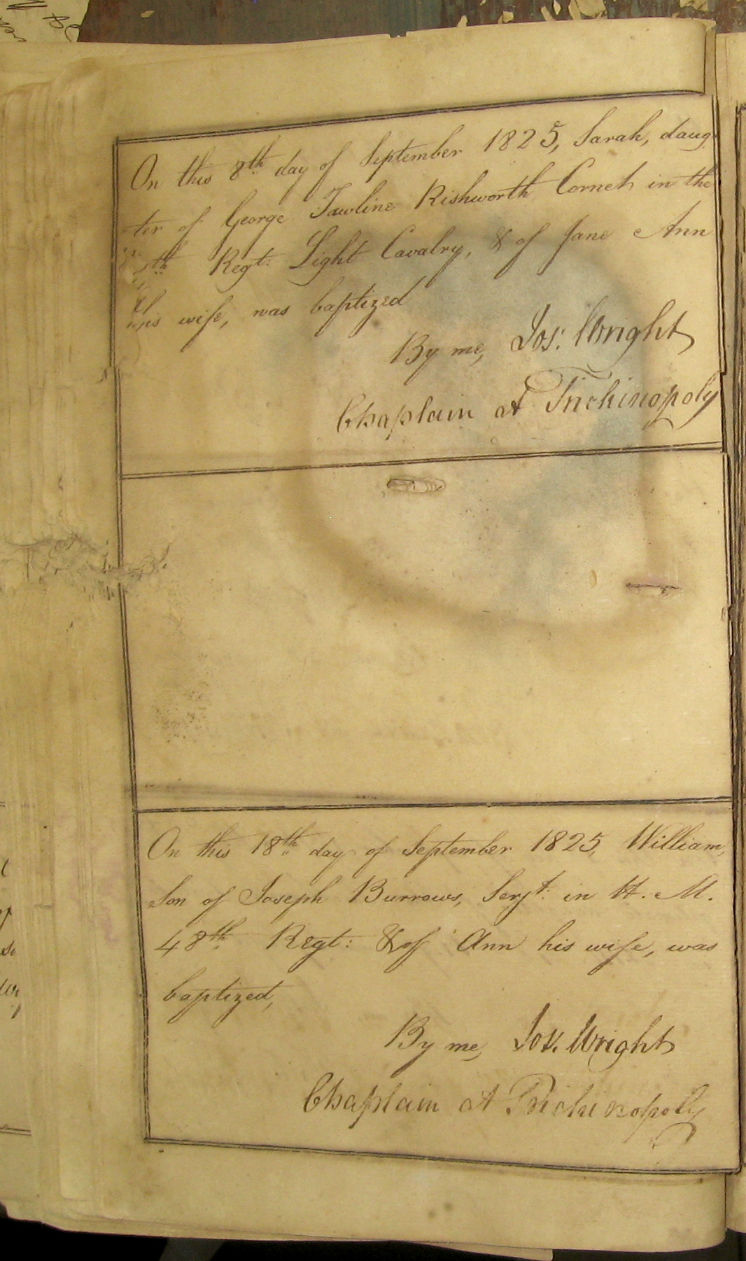 On this 8th day of September 1825, Sarah, daug
ter of George Rishworth Cornet in the
Regt: Light Cavalry, & of Jane Ann
his wife, was baptized
By me, Jos: Wright
Chaplain at Trichinopoly
On this 18th day of September 1825, William,
Son of Joseph Burrows, Serjt: in H. M.
48th Regt: & of Ann his wife, was
baptized,
By me, Jos. Wright
Chaplain at Trichinopoly